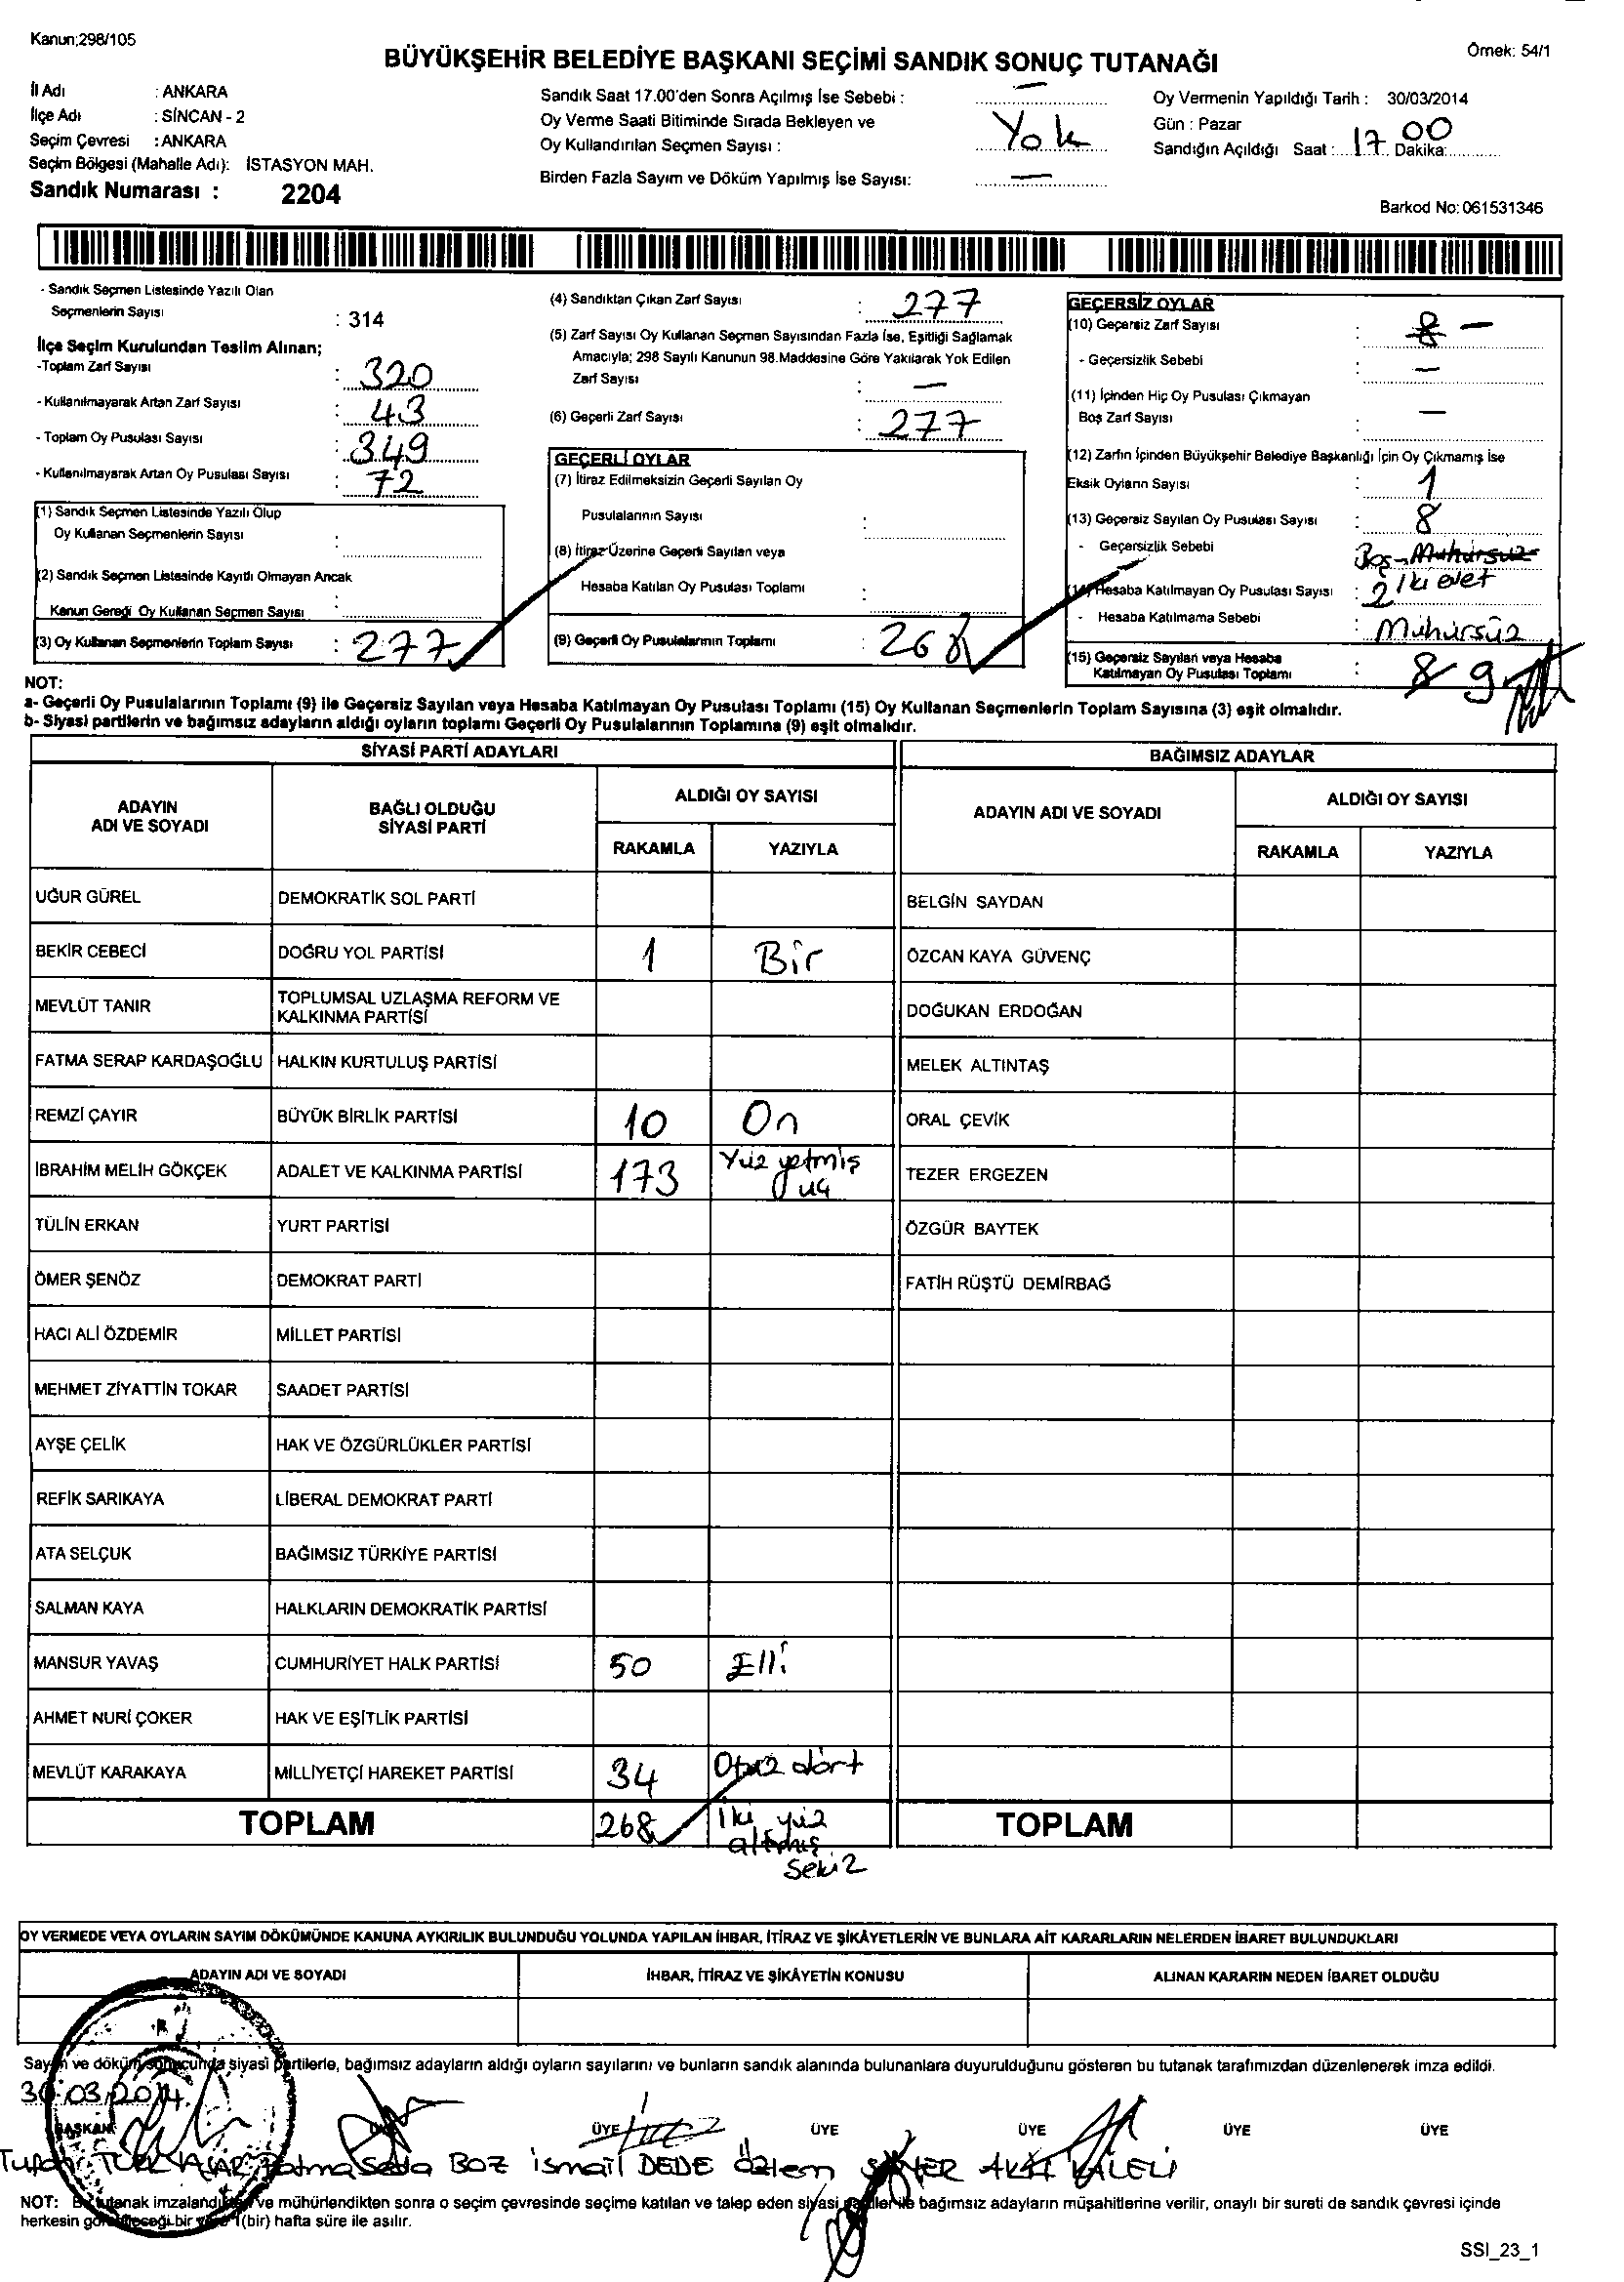 Kanun;298/105
Örnek: 54/1
BÜYÜKŞEHİR BELEDİYE BAŞKANI SEÇİMİ SANDIK SONUÇ TUTANAĞI
İl Adı : ANKARA
İlçe Adı : SİNCAN - 2
Seçim Çevresi : ANKARA
Seçim Bölgesi (Mahalle Adı): İSTASYON MAH.
Sandık Numarası : 2204
Sandık Saat 17.00'den Sonra Açılmış İse Sebebi : —
Oy Verme Saati Bitiminde Sırada Bekleyen ve
Oy Kullandırılan Seçmen Sayısı : Yok
Birden Fazla Sayım ve Döküm Yapılmış İse Sayısı: —
Oy Vermenin Yapıldığı Tarih : 30/03/2014
Gün : Pazar
Sandığın Açıldığı Saat : 17 Dakika: 00
Barkod No: 061531346
- Sandık Seçmen Listesinde Yazılı Olan
Seçmenlerin Sayısı : 314
İlçe Seçim Kurulundan Teslim Alınan;
-Toplam Zarf Sayısı : 320
- Kullanılmayarak Artan Zarf Sayısı : 43
- Toplam Oy Pusulası Sayısı : 349
- Kullanılmayarak Artan Oy Pusulası Sayısı : 72
(1) Sandık Seçmen Listesinde Yazılı Olup
Oy Kullanan Seçmenlerin Sayısı :
(2) Sandık Seçmen Listesinde Kayıtlı Olmayan Ancak
Kanun Gereği Oy Kullanan Seçmen Sayısı :
(3) Oy Kullanan Seçmenlerin Toplam Sayısı : 277
(4) Sandıktan Çıkan Zarf Sayısı : 277
(5) Zarf Sayısı Oy Kullanan Seçmen Sayısından Fazla İse, Eşitliği Sağlamak
Amacıyla; 298 Sayılı Kanunun 98.Maddesine Göre Yakılarak Yok Edilen
Zarf Sayısı : —
(6) Geçerli Zarf Sayısı : 277
GEÇERLİ OYLAR
(7) İtiraz Edilmeksizin Geçerli Sayılan Oy
Pusulalarının Sayısı :
(8) İtiraz Üzerine Geçerli Sayılan veya
Hesaba Katılan Oy Pusulası Toplamı :
(9) Geçerli Oy Pusulalarının Toplamı : 268
GEÇERSİZ OYLAR
(10) Geçersiz Zarf Sayısı : 8 —
- Geçersizlik Sebebi : —
(11) İçinden Hiç Oy Pusulası Çıkmayan
Boş Zarf Sayısı : —
(12) Zarfın İçinden Büyükşehir Belediye Başkanlığı İçin Oy Çıkmamış İse
Eksik Oyların Sayısı : 1
(13) Geçersiz Sayılan Oy Pusulası Sayısı : 8
- Geçersizlik Sebebi : Boş - Mühürsüz
iki evet
(14) Hesaba Katılmayan Oy Pusulası Sayısı : 2
- Hesaba Katılmama Sebebi : Mühürsüz
(15) Geçersiz Sayılan veya Hesaba
Katılmayan Oy Pusulası Toplamı : 8 9
NOT:
a- Geçerli Oy Pusulalarının Toplamı (9) ile Geçersiz Sayılan veya Hesaba Katılmayan Oy Pusulası Toplamı (15) Oy Kullanan Seçmenlerin Toplam Sayısına (3) eşit olmalıdır.
b- Siyasi partilerin ve bağımsız adayların aldığı oyların toplamı Geçerli Oy Pusulalarının Toplamına (9) eşit olmalıdır.
SİYASİ PARTİ ADAYLARI
ADAYIN ADI VE SOYADI BAĞLI OLDUĞU SİYASİ PARTİ ALDIĞI OY SAYISI
RAKAMLA YAZIYLA
UĞUR GÜREL DEMOKRATİK SOL PARTİ
BEKİR CEBECİ DOĞRU YOL PARTİSİ 1 Bir
MEVLÜT TANIR TOPLUMSAL UZLAŞMA REFORM VE KALKINMA PARTİSİ
FATMA SERAP KARDAŞOĞLU HALKIN KURTULUŞ PARTİSİ
REMZİ ÇAYIR BÜYÜK BİRLİK PARTİSİ 10 On
İBRAHİM MELİH GÖKÇEK ADALET VE KALKINMA PARTİSİ 173 Yüz yetmiş üç
TÜLİN ERKAN YURT PARTİSİ
ÖMER ŞENÖZ DEMOKRAT PARTİ
HACI ALİ ÖZDEMİR MİLLET PARTİSİ
MEHMET ZİYATTİN TOKAR SAADET PARTİSİ
AYŞE ÇELİK HAK VE ÖZGÜRLÜKLER PARTİSİ
REFİK SARIKAYA LİBERAL DEMOKRAT PARTİ
ATA SELÇUK BAĞIMSIZ TÜRKİYE PARTİSİ
SALMAN KAYA HALKLARIN DEMOKRATİK PARTİSİ
MANSUR YAVAŞ CUMHURİYET HALK PARTİSİ 50 Elli
AHMET NURİ ÇOKER HAK VE EŞİTLİK PARTİSİ
MEVLÜT KARAKAYA MİLLİYETÇİ HAREKET PARTİSİ 34 Otuz dört
TOPLAM 268 İki yüz altmış sekiz
BAĞIMSIZ ADAYLAR
ADAYIN ADI VE SOYADI ALDIĞI OY SAYISI
RAKAMLA YAZIYLA
BELGİN SAYDAN
ÖZCAN KAYA GÜVENÇ
DOĞUKAN ERDOĞAN
MELEK ALTINTAŞ
ORAL ÇEVİK
TEZER ERGEZEN
ÖZGÜR BAYTEK
FATİH RÜŞTÜ DEMİRBAĞ
TOPLAM
OY VERMEDE VEYA OYLARIN SAYIM DÖKÜMÜNDE KANUNA AYKIRILIK BULUNDUĞU YOLUNDA YAPILAN İHBAR, İTİRAZ VE ŞİKÂYETLERİN VE BUNLARA AİT KARARLARIN NELERDEN İBARET BULUNDUKLARI
ADAYIN ADI VE SOYADI İHBAR, İTİRAZ VE ŞİKÂYETİN KONUSU ALINAN KARARIN NEDEN İBARET OLDUĞU
Sayım ve döküm sonucunda siyasi partilerle, bağımsız adayların aldığı oyların sayılarını ve bunların sandık alanında bulunanlara duyurulduğunu gösteren bu tutanak tarafımızdan düzenlenerek imza edildi.
30.03.2014
BAŞKAN ÜYE ÜYE ÜYE ÜYE ÜYE
Fatma Seda BOZ İsmail DEDE Özlem KALELİ
NOT: Bu tutanak imzalandıktan ve mühürlendikten sonra o seçim çevresinde seçime katılan ve talep eden siyasi partiler ile bağımsız adayların müşahitlerine verilir, onaylı bir sureti de sandık çevresi içinde
herkesin görebileceği bir yere 1(bir) hafta süre ile asılır.
SSI_23_1